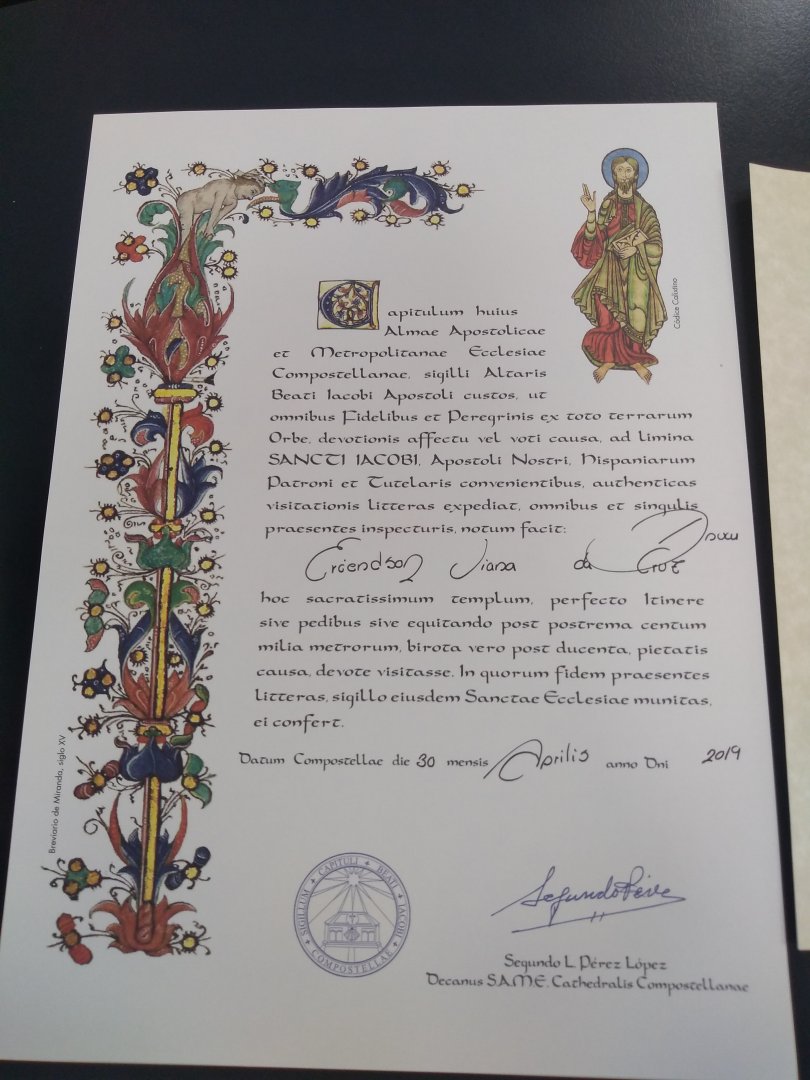 Capitulum huius
Almae Apostolicae
et Metropolitanae Ecclesiae
Compostellanae, sigilli Altaris
Beati Iacobi Apostoli custos, ut
omnibus Fidelibus et Peregrinis ex toto terrarum
Orbe, devotionis affectu vel voti causa, ad limina
SANCTI IACOBI, Apostoli Nostri, Hispaniarum
Patroni et Tutelaris convenientibus, authenticas
visitationis litteras expediat, omnibus et singulis
praesentes inspecturis, notum facit:
Viana da Cruz
hoc sacratissimum templum, perfecto Itinere
sive pedibus sive equitando post postrema centum
milia metrorum, birota vero post ducenta, pietatis
causa, devote visitasse. In quorum fidem praesentes
litteras, sigillo eiusdem Sanctae Ecclesiae munitas,
ei confert.
Datum Compostellae die 30 mensis Aprilis anno Dni 2019
Códice Calixtino
Breviario de Miranda, siglo XV
SIGILLUM CAPITULI BEATI IACOBI COMPOSTELLAE
Segundo Pérez
Segundo L. Pérez López
Decanus S.A.M.E. Cathedralis Compostellanae